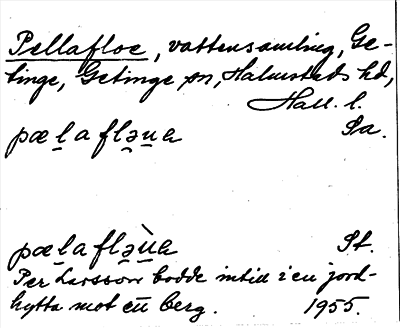 Pellafloe, vattensamling, Ge-
tinge, Getinge sn, Halmstads hd,
Hall. l.
pælafləua Sa.
pælaflə̀ua St.
Per Larsson bodde intill i en jord-
hytta mot ett berg. 1955.